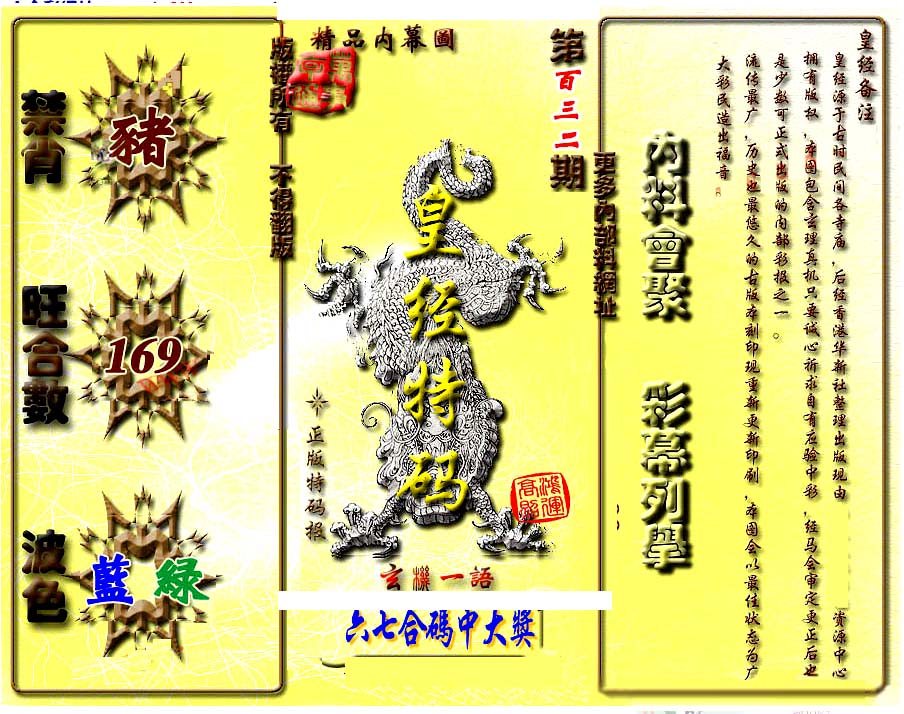 皇经备注
皇经源于古时民间各寺庙，后经香港华新社整理出版现由 资源中心
拥有版权，本图包含玄理真机只要诚心祈求自有应验中彩，经马会审定更正后也
是少数可正式出版的内部彩报之一。
流传最广，历史也最悠久的古版本刻印现重新更新印刷，本图会以最佳状态为广
大彩民造出福音
内料會聚
彩幕列舉
精品内幕圖
第百三二期
更多内部料網址
版權所有 不得翻版
皇经特码
正版特码报
鴻運
高照
玄機一語
六七合碼中大獎
禁肖
豬
旺合數
169
波色
藍 緑